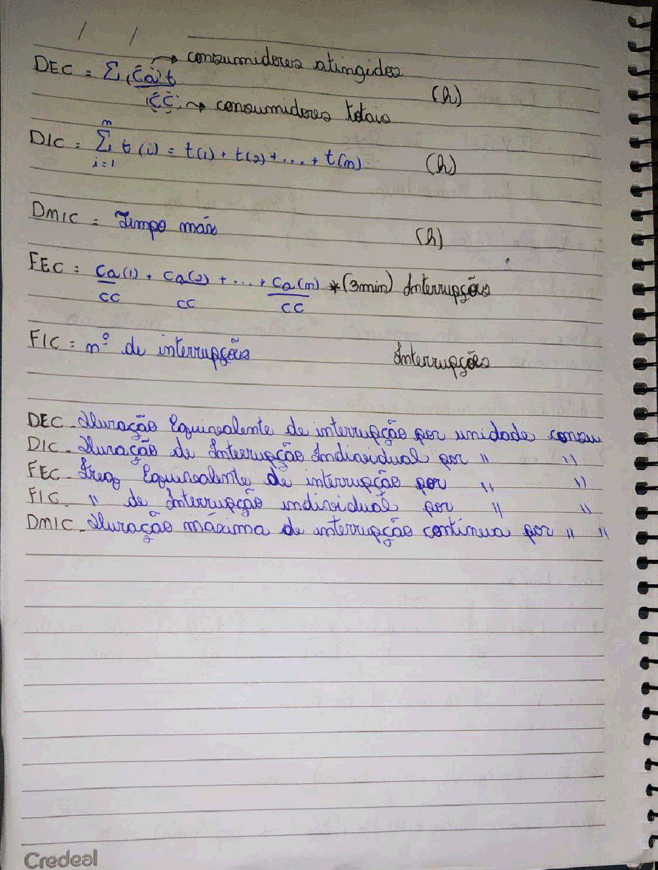 / /
DEC = Σ (Ca) t → consumidores atingidos
CC → consumidores totais (h)
DIC = Σ t(i) = t(1) + t(2) + ... + t(n) (h)
n
i=1
DMIC = Tempo máx (h)
FEC = Ca(1) + Ca(2) + ... + Ca(n) *(3min) Interrupções
CC CC CC
FIC = nº de interrupções Interrupções
DEC - Duração Equivalente de interrupção por unidade consu
DIC - Duração de Interrupção Individual por " "
FEC - Freq Equivalente de interrupção por " "
FIC - " de Interrupção individual por " "
DMIC - Duração máxima de interrupção contínua por " "
Credeal